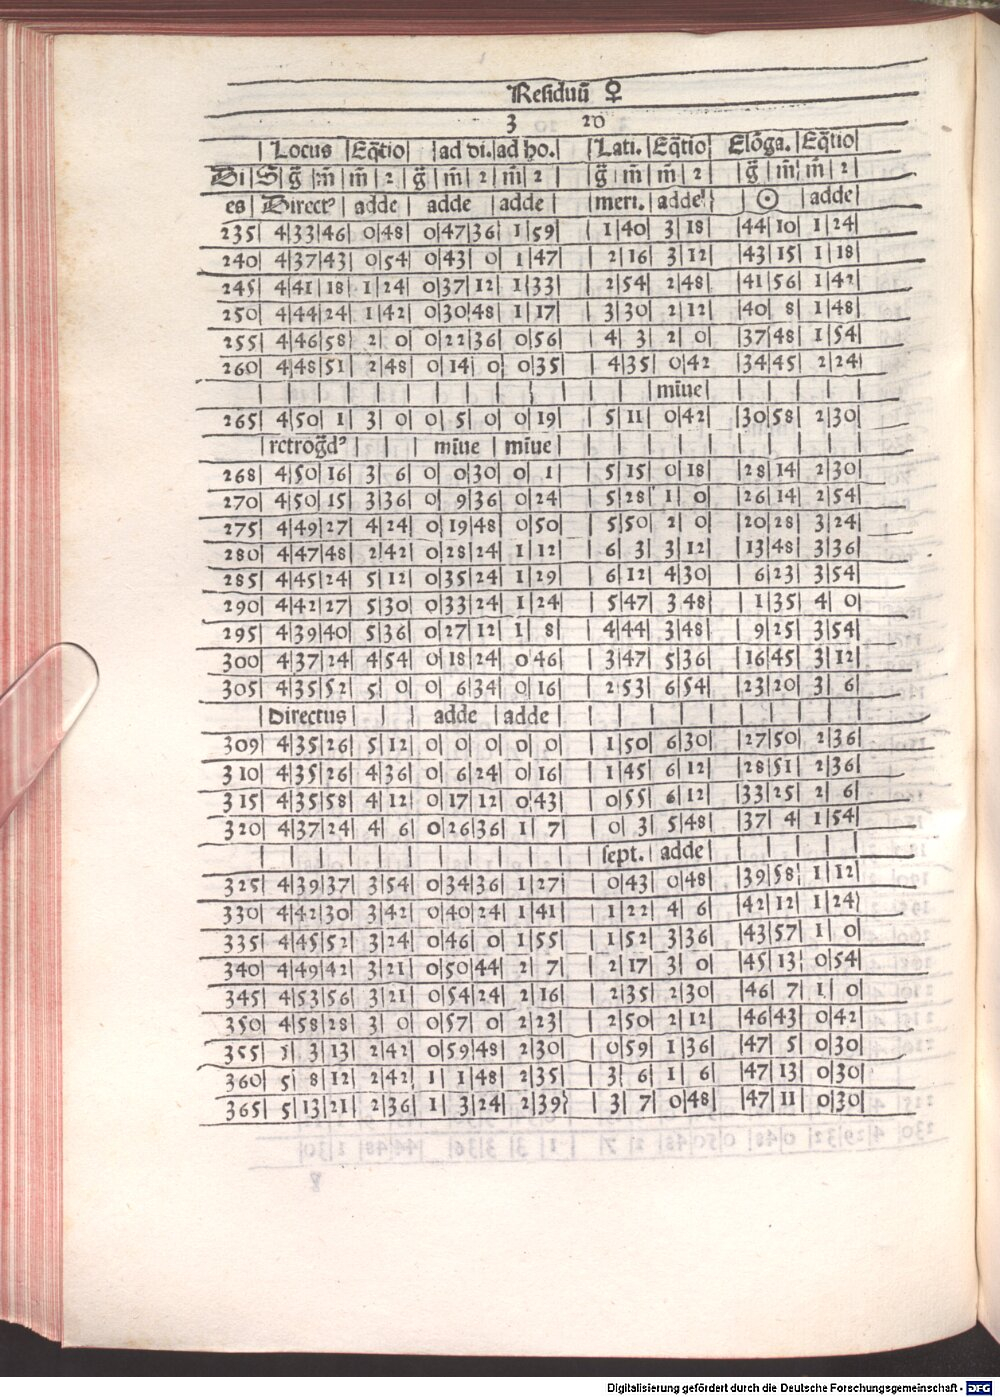 Residuū ♀
3 20
| Locus | Eq̄tio | ad di. | ad ho. | Lati. | Eq̄tio | Elōga. | Eq̄tio
Di | S̄ | g̃ | m̄ | m̄ | 2 | g̃ | m̄ | 2 | m̄ | 2 | g̃ | m̄ | m̄ | 2 | g̃ | m̄ | m̄ | 2
es | Direct⁹ | adde | adde | adde | meri. | adde | ☉ | adde
235| 4|33|46 0|48 0|47|36 1|59 1|40 3|18 44|10 1|24
240| 4|37|43 0|54 0|43|0 1|47 2|16 3|12 43|15 1|18
245| 4|41|18 1|24 0|37|12 1|33 2|54 2|48 41|56 1|42
250| 4|44|24 1|42 0|30|48 1|17 3|30 2|12 40|8 1|48
255| 4|46|58 2|0 0|22|36 0|56 4|3 2|0 37|48 1|54
260| 4|48|51 2|48 0|14|0 0|35 4|35 0|42 34|45 2|24
mīue
265| 4|50|1 3|0 0|5|0 0|19 5|11 0|42 30|58 2|30
retrog̃d⁹ | mīue | mīue
268| 4|50|16 3|6 0|0|30 0|1 5|15 0|18 28|14 2|30
270| 4|50|15 3|36 0|9|36 0|24 5|28 1|0 26|14 2|54
275| 4|49|27 4|24 0|19|48 0|50 5|50 2|0 20|28 3|24
280| 4|47|48 2|42 0|28|24 1|12 6|3 3|12 13|48 3|36
285| 4|45|24 5|12 0|35|24 1|29 6|12 4|30 6|23 3|54
290| 4|42|27 5|30 0|33|24 1|24 5|47 3|48 1|35 4|0
295| 4|39|40 5|36 0|27|12 1|8 4|44 3|48 9|25 3|54
300| 4|37|24 4|54 0|18|24 0|46 3|47 5|36 16|45 3|12
305| 4|35|52 5|0 0|6|34 0|16 2|53 6|54 23|20 3|6
Directus | adde | adde
309| 4|35|26 5|12 0|0|0 0|0 1|50 6|30 27|50 2|36
310| 4|35|26 4|36 0|6|24 0|16 1|45 6|12 28|51 2|36
315| 4|35|58 4|12 0|17|12 0|43 0|55 6|12 33|25 2|6
320| 4|37|24 4|6 0|26|36 1|7 0|3 5|48 37|4 1|54
sept. | adde
325| 4|39|37 3|54 0|34|36 1|27 0|43 0|48 39|58 1|12
330| 4|42|30 3|42 0|40|24 1|41 1|22 4|6 42|12 1|24
335| 4|45|52 3|24 0|46|0 1|55 1|52 3|36 43|57 1|0
340| 4|49|42 3|21 0|50|44 2|7 2|17 3|0 45|13 0|54
345| 4|53|56 3|21 0|54|24 2|16 2|35 2|30 46|7 1|0
350| 4|58|28 3|0 0|57|0 2|23 2|50 2|12 46|43 0|42
355| 3|13 2|42 0|59|48 2|30 0|59 1|36 47|5 0|30
360| 5|8|12 2|42 1|1|48 2|35 3|6 1|6 47|13 0|30
365| 5|13|21 2|36 1|3|24 2|39 3|7 0|48 47|11 0|30
Digitalisierung gefördert durch die Deutsche Forschungsgemeinschaft - DFG